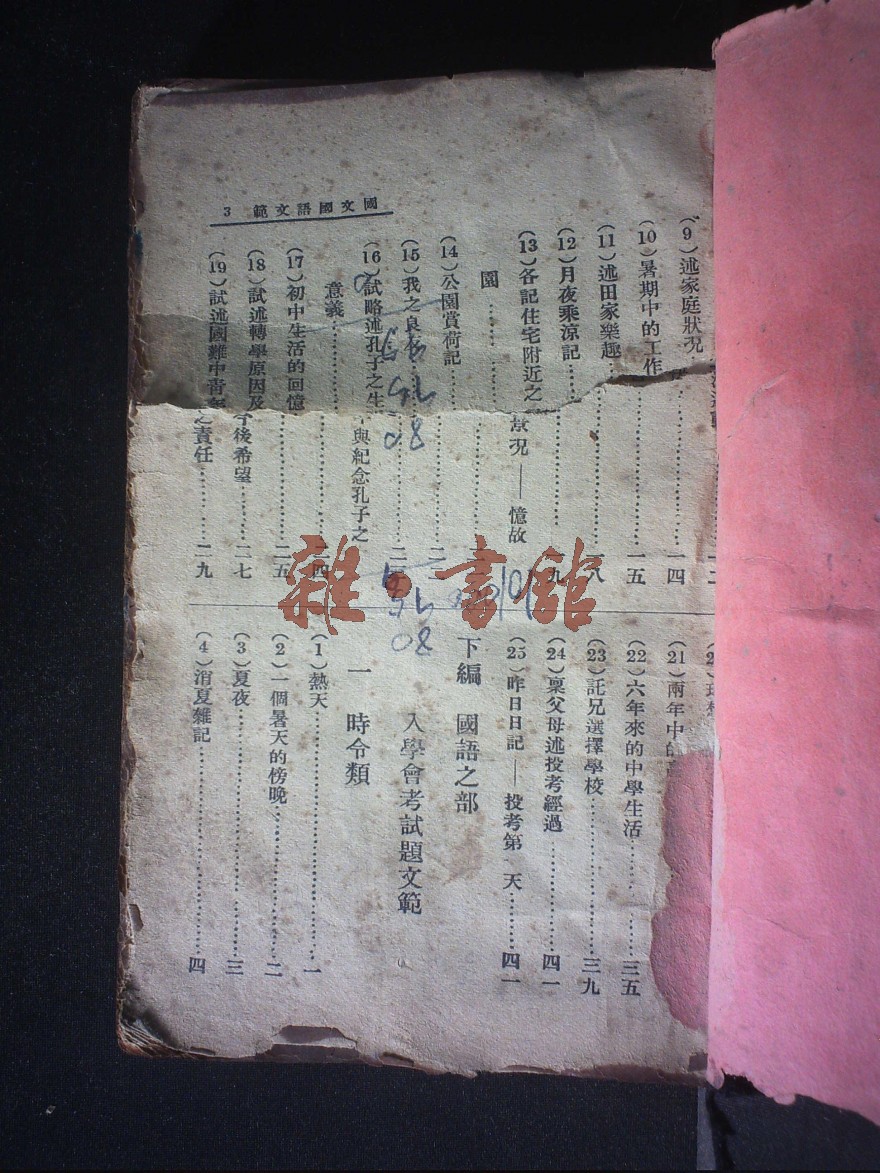 範文語國文國 3
(9)述家庭狀況
一四
(10)暑期中的工作
一五
(11)述田家樂趣
一八
(12)月夜乘涼記
九
(13)各記住宅附近之 景況——憶故
園
(14)公園賞荷記
(15)我之良
(16)試略述孔子之生 與紀念孔子之
意義
二四
(17)初中生活的回憶
二五
(18)試述轉學原因及 後希望
二七
(19)試述國難中青年之責任
二九
(21)兩年中的
(22)六年來的中學生活
三五
(23)託兄選擇學校
三九
(24)稟父母述投考經過
四一
(25)昨日日記——投考第 天
四一
下編 國語之部
入學會考試題文範
一 時令類
(1)熱天
一
(2)一個暑天的傍晚
二
(3)夏夜
三
(4)消夏雜記
四
雜·書館
08
08